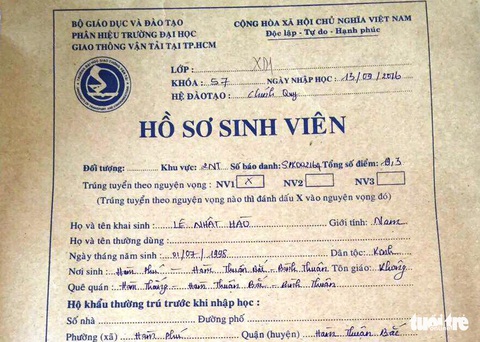 BỘ GIÁO DỤC VÀ ĐÀO TẠO
PHÂN HIỆU TRƯỜNG ĐẠI HỌC
GIAO THÔNG VẬN TẢI TẠI TP.HCM
CỘNG HÒA XÃ HỘI CHỦ NGHĨA VIỆT NAM
Độc lập - Tự do - Hạnh phúc
LỚP :
KHÓA : 57 NGÀY NHẬP HỌC : 13/09/2016
HỆ ĐÀO TẠO : Chính Quy
HỒ SƠ SINH VIÊN
Đối tượng: Khu vực: 2NT Số báo danh: Tổng số điểm:
Trúng tuyển theo nguyện vọng: NV1 X NV2 NV3
(Trúng tuyển theo nguyện vọng nào thì đánh dấu X vào nguyện vọng đó)
Họ và tên khai sinh : LÊ NHẬT HÀO Giới tính: Nam
Họ và tên thường dùng :
Ngày tháng năm sinh: 01/07/1998 Dân tộc: Kinh
Nơi sinh : Hàm Phú - Hàm Thuận Bắc - Bình Thuận Tôn giáo: Không
Quê quán : Hàm Thắng - Hàm Thuận Bắc - Bình Thuận
Hộ khẩu thường trú trước khi nhập học :
Số nhà Đường phố
Phường (xã) Hàm Phú Quận (huyện) Hàm Thuận Bắc
tuổi trẻ